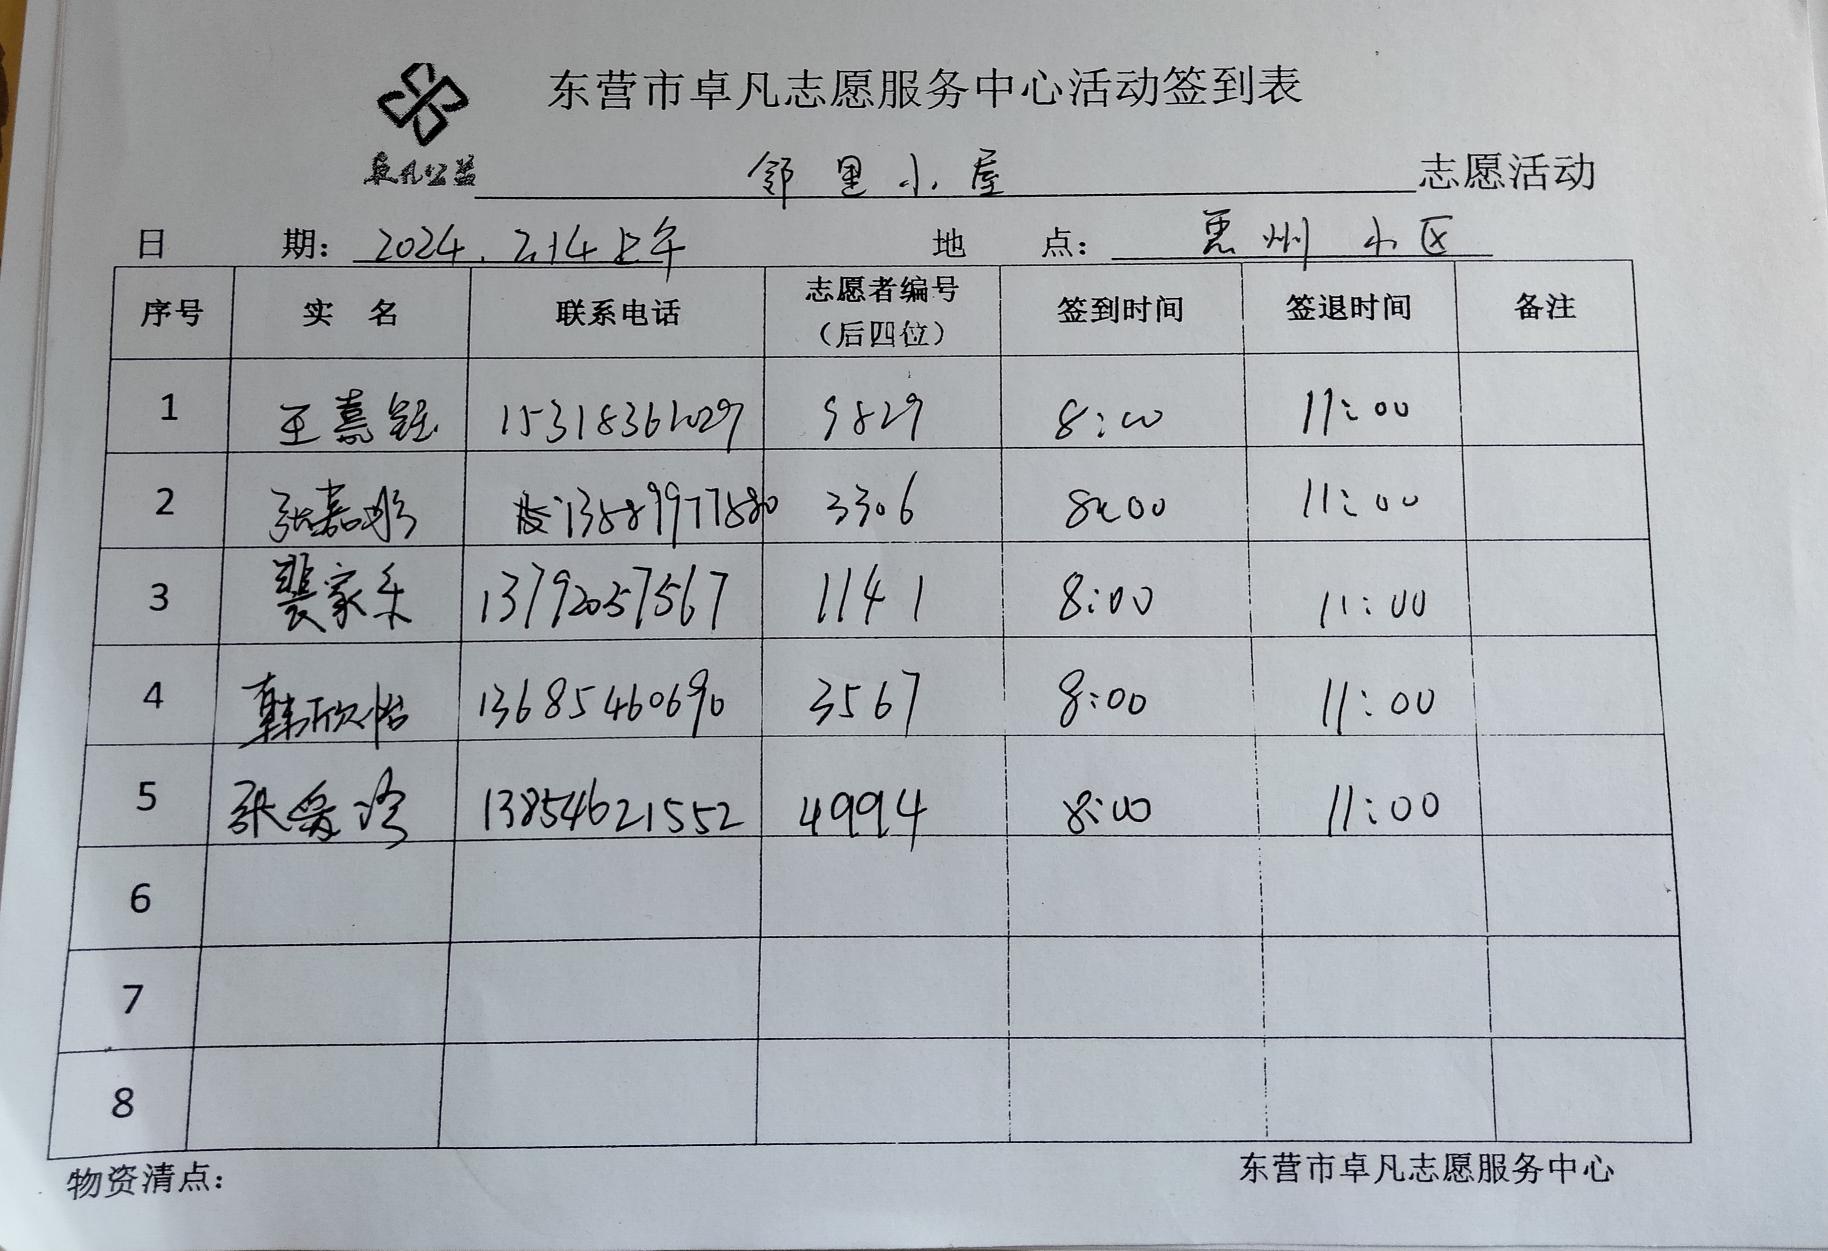 东营市卓凡志愿服务中心活动签到表
卓凡公益 邻里小屋 志愿活动
日 期： 2024.2.14上午 地 点： 惠州小区
序号 实 名 联系电话 志愿者编号（后四位） 签到时间 签退时间 备注
1 王嘉钰 9829 8:00 11:00
2 张嘉彤 13589977880 3306 8:00 11:00
3 裴家乐 13792057567 1141 8:00 11:00
4 韩欣怡 13685460690 3567 8:00 11:00
5 张爱玲 13854621552 4994 8:00 11:00
6
7
8
物资清点： 东营市卓凡志愿服务中心